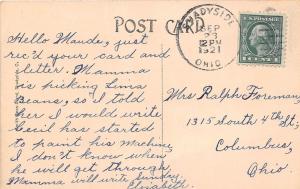 POST CARD
SHADYSIDE
SEP
23
12 PM
1921
OHIO
1 CENT 1
Hello Maude, just
rec'd your card and
letter. Mamma
is picking Lima
Beans, so I told
her I would write
Cecil has started
to paint his machine,
I don't know when
he will get through.
Mamma will write Sunday.
Elizabeth.
Mrs Ralph Foreman
1315 South 4th St;
Columbus,
Ohio.